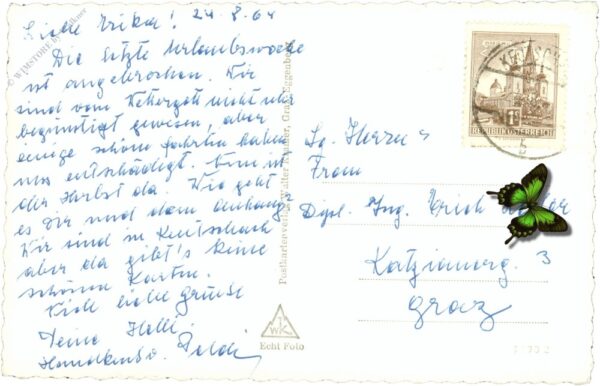 Liebe Erika! 24.8.64
Die letzte Urlaubswoche
ist angebrochen. Wir
sind vom Wettergott nicht sehr
begünstigt gewesen, aber
einige schöne Fahrten haben
uns entschädigt. Nun ist
der Herbst da. Wie geht
es Dir und dem Anhang?
Wir sind in Keutschach
aber da gibt's keine
schönen Karten.
Viele liebe Grüsse
Deine Helli
Postkartenverlag Walter Kramer, Graz-Eggenberg
WK
Echt Foto
REPUBLIK ÖSTERREICH
Frau
Dipl. Ing. Erich
3
Graz